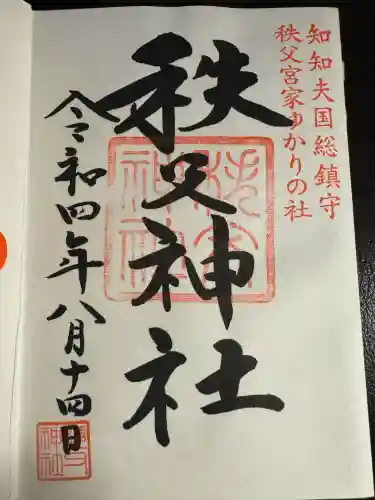 知知夫国総鎮守
秩父宮家ゆかりの社
秩父神社
令和四年八月十四日
秩父神社